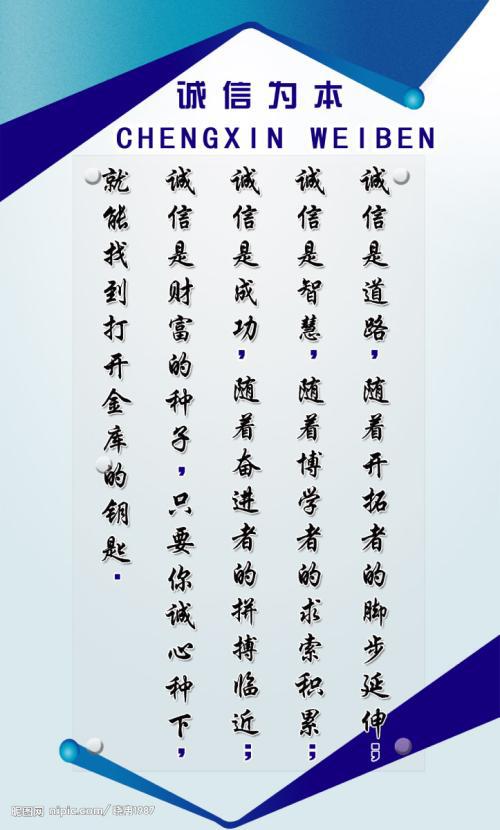 诚信为本
CHENGXIN WEIBEN
诚信是道路,随着开拓者的脚步延伸;
诚信是智慧,随着博学者的求索积累;
诚信是成功,随着奋进者的拼搏临近;
诚信是财富的种子,只要你诚心种下,
就能找到打开金库的钥匙.
昵图网 nipic.com/晓冉1987